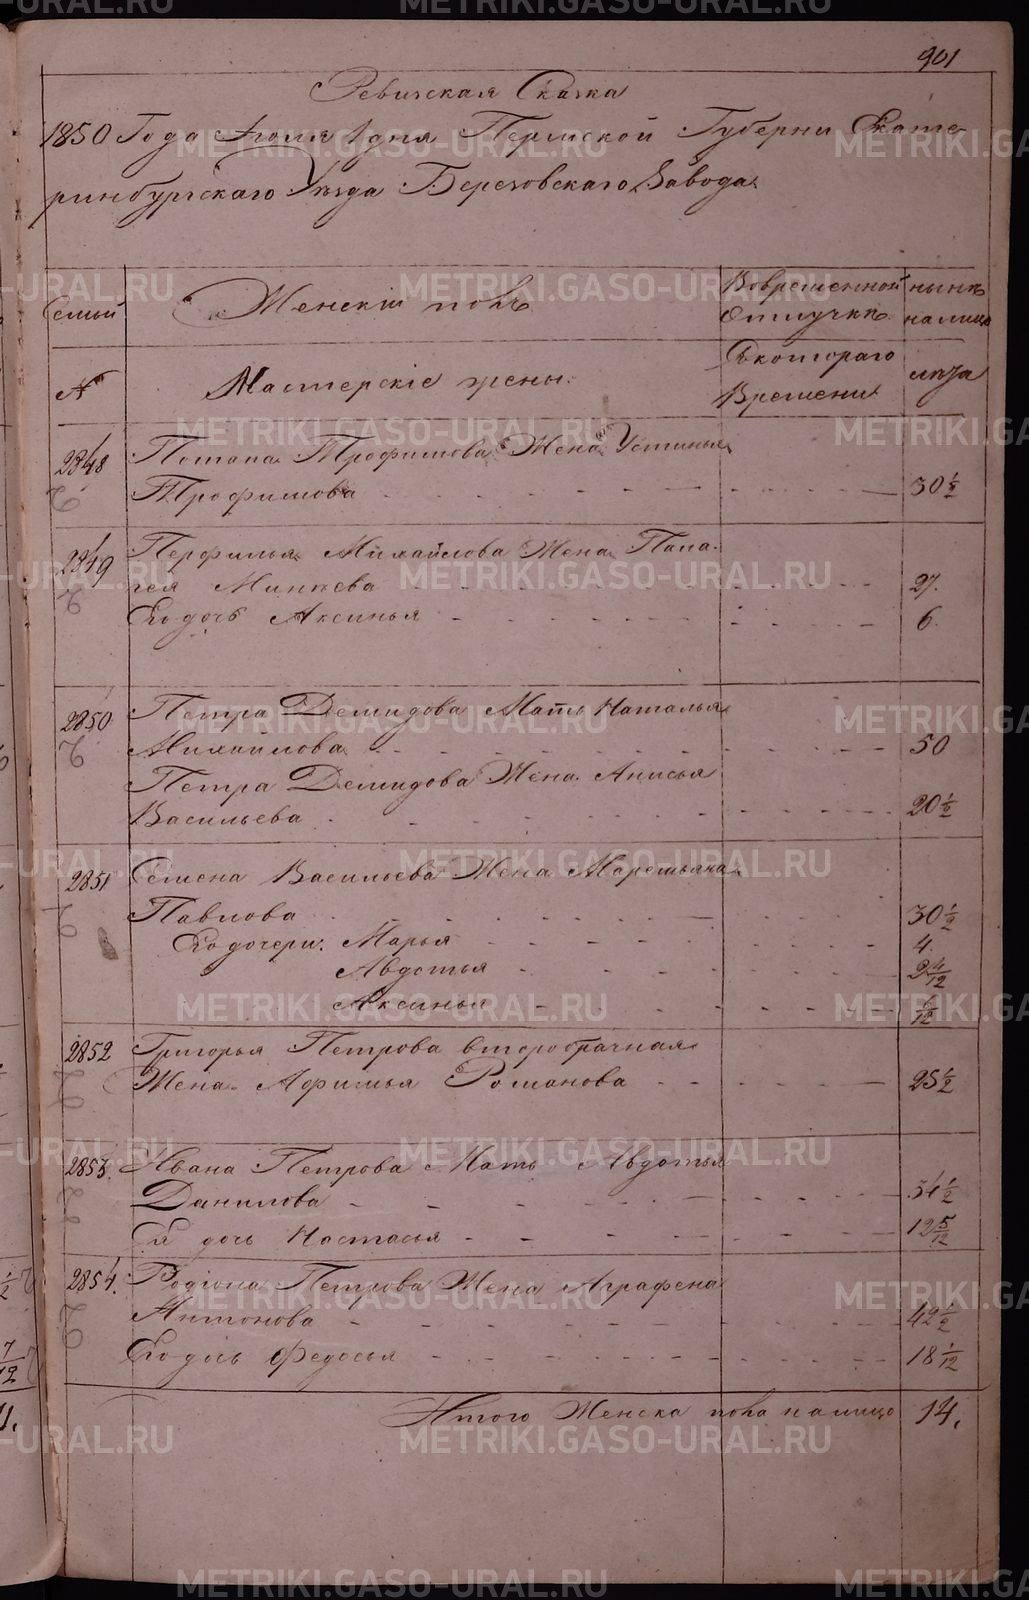 901
Ревизская Сказка
1850 Года Июля 1 дня Пермской Губерни Екате-
ринбургскаго Уезда Березовскаго Завода
Семьи
Женскій полъ
Вовременной Отлучкѣ
нынѣ налицо
№
Мастерскіе жены.
Скотораго Времени
лѣта
2848 Потапа Трофимова Жена Устинья
Трофимова 30 ½
2849 Перфилья Михайлова Жена Пела-
гея Минѣева 27.
Его дочь Аксинья 6
2850 Петра Демидова Мать Наталья
Михайлова 50
Петра Демидова Жена Анисья
Васильева 20 ½
2851 Семена Васильева Жена Маремьяна
Павлова 30 ½
Его дочери: Марья 4.
Авдотья 2 4/12
Аксинья 1/12
2852 Григорья Петрова второбрачная
Жена Афимья Романова 25 ½
2853. Ивана Петрова Мать Авдотья
Данилова 51 ½
Ея дочь Настасья 12 5/12
2854. Родіона Петрова Жена Аграфена
Антонова 42 ½
Его дочь Федосья 18 1/12
Итого Женска пола налицо 14.
METRIKI.GASO-URAL.RU